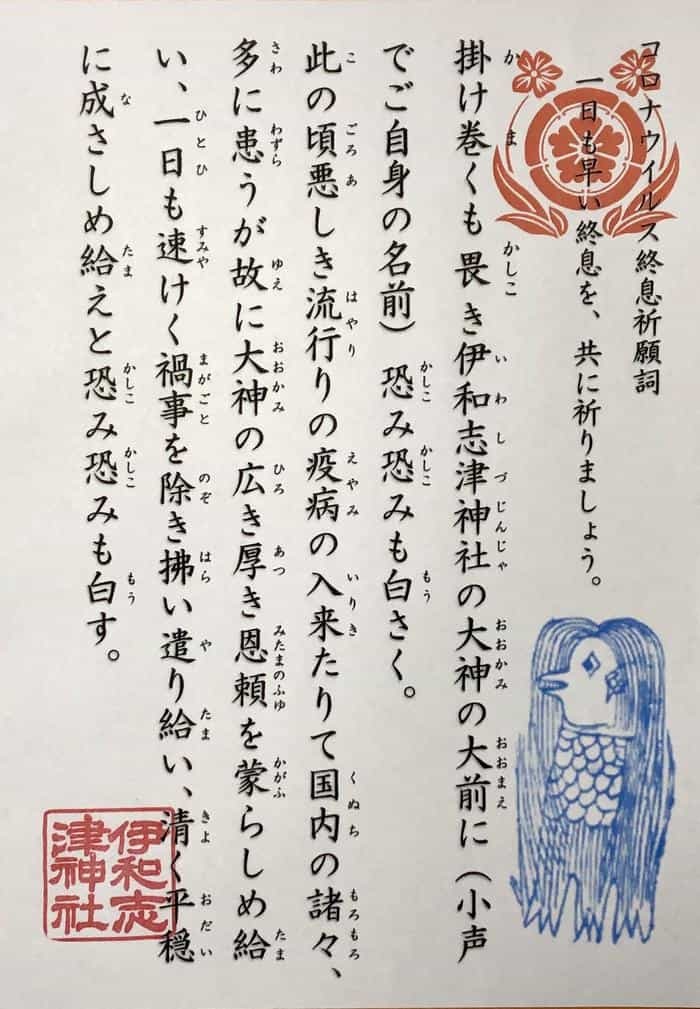 コロナウイルス終息祈願詞
一日も早い終息を、共に祈りましょう。
掛け巻くも畏き伊和志津神社の大神の大前に（小声
でご自身の名前）恐み恐みも白さく。
此の頃悪しき流行りの疫病の入来たりて国内の諸々、
多に患うが故に大神の広き厚き恩頼を蒙らしめ給
い、一日も速けく禍事を除き拂い遣り給い、清く平穏
に成さしめ給えと恐み恐みも白す。
伊和志
津神社